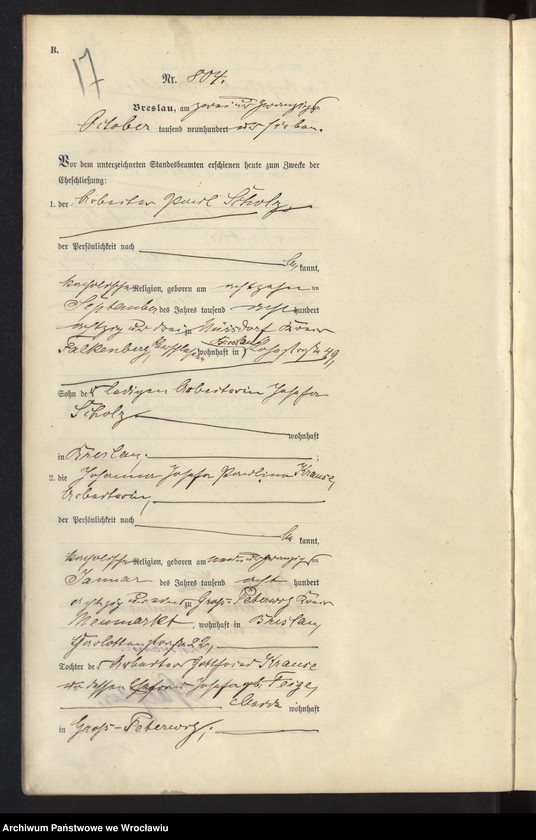 B.
17
Nr. 804.
Breslau, am zwei und zwanzigsten
October tausend neunhundert und sieben.
Vor dem unterzeichneten Standesbeamten erschienen heute zum Zwecke der
Eheschließung:
1. der Arbeiter Paul Scholz,
der Persönlichkeit nach
be kannt,
katholischer Religion, geboren am achtzehnten
September des Jahres tausend acht hundert
achtzig und drei zu Kreis
Falkenberg, wohnhaft in Breslau 49,
Sohn der ledigen Arbeiterin Josefa
Scholz
wohnhaft
in Breslau. ;
2. die Johanna Josefa Paulina Krause,
Arbeiterin,
der Persönlichkeit nach
be kannt,
katholischer Religion, geboren am zwanzigsten
Januar des Jahres tausend acht hundert
achtzig und zu Groß-Peterwitz Kreis
Neumarkt, wohnhaft in Breslau,
Charlottenstraße 22,
Tochter des Arbeiters Gottfried Krause
und dessen Ehefrau Josefa geb.
beide wohnhaft
in Groß-Peterwitz.
Archiwum Państwowe we Wrocławiu